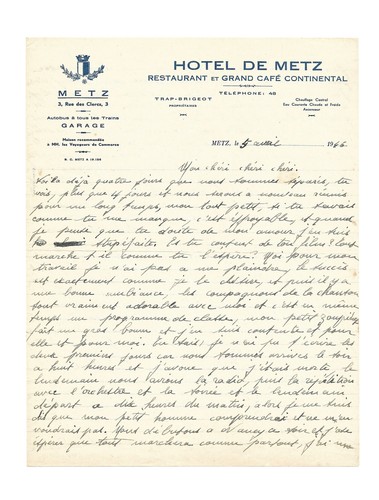 HOTEL DE METZ
RESTAURANT ET GRAND CAFÉ CONTINENTAL
TÉLÉPHONE: 46
METZ
3, Rue des Clercs, 3
Autobus à tous les Trains
GARAGE
Maison recommandée
à MM. les Voyageurs de Commerce
R. C. METZ
TRAP-BRIGEOT
PROPRIÉTAIRES
Chauffage Central
Eau Courante Chaude et Froide
Ascenseur
METZ, le 5 avril 1946
Mon chéri chéri chéri.
Voilà déjà quatre jours que nous sommes séparés, tu
vois, plus que 4 jours et nous serons à nouveau réunis
pour un long temps, mon tout petit, si tu savais
comme tu me manques, c'est effroyable, et quand
je pense que tu doutes de mon amour j'en suis
stupéfaite. Es tu content de ton film? cela
marche t il comme tu l'espère? Moi pour mon
travail je n'ai pas a me plaindre, le succès
est exactement comme je le désire, et puis il y a
une bonne ambiance, les compagnons de la chanson
sont vraiment adorable avec moi et c'est en même
temps un programme de classe, mon petit
fait une gros boum et j'en suis contente et pour
elle et pour moi. je n'ai pu t'écrire les
deux premiers jours car nous sommes arrivés le soir
a huit heures et j'avoue que j'étais morte, le
lendemain nous avions la radio, puis la répétition
avec l'orchestre et la soirée et le lendemain
départ a dix heures du matin, alors je me suis
dis que mon petit homme comprendrait et ne m'en
voudrait pas. Nous débutons a Nancy ce soir et j'ose
espérer que tout marchera comme partout, j'ai